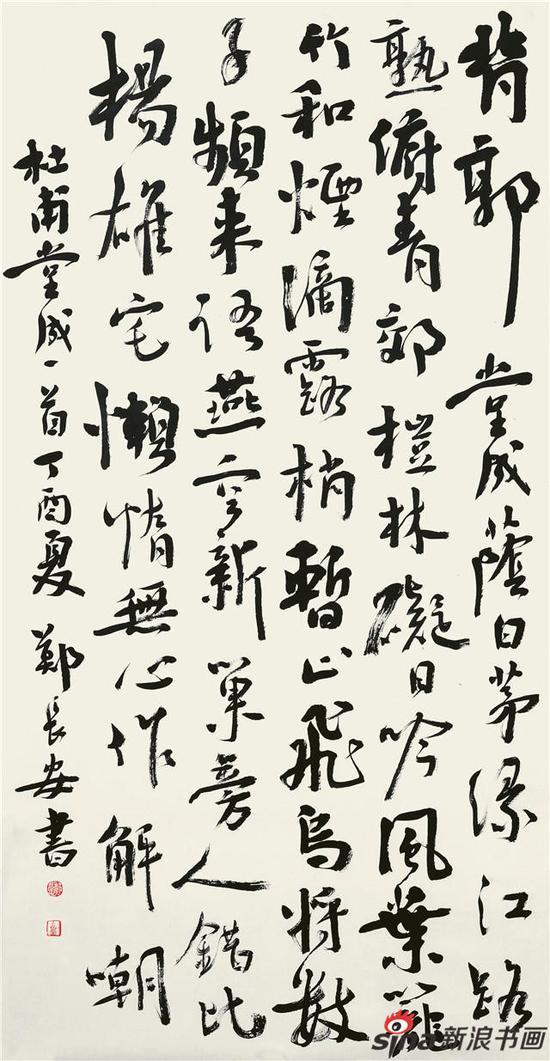 背郭堂成蔭白茅緣江路
熟俯青郊榿林礙日吟風葉籠
竹和煙滴露梢暫止飛烏將數
子頻來語燕定新巢旁人錯比
楊雄宅懶惰無心作解嘲
杜甫堂成一首丁酉夏鄭長安書
sina新浪书画